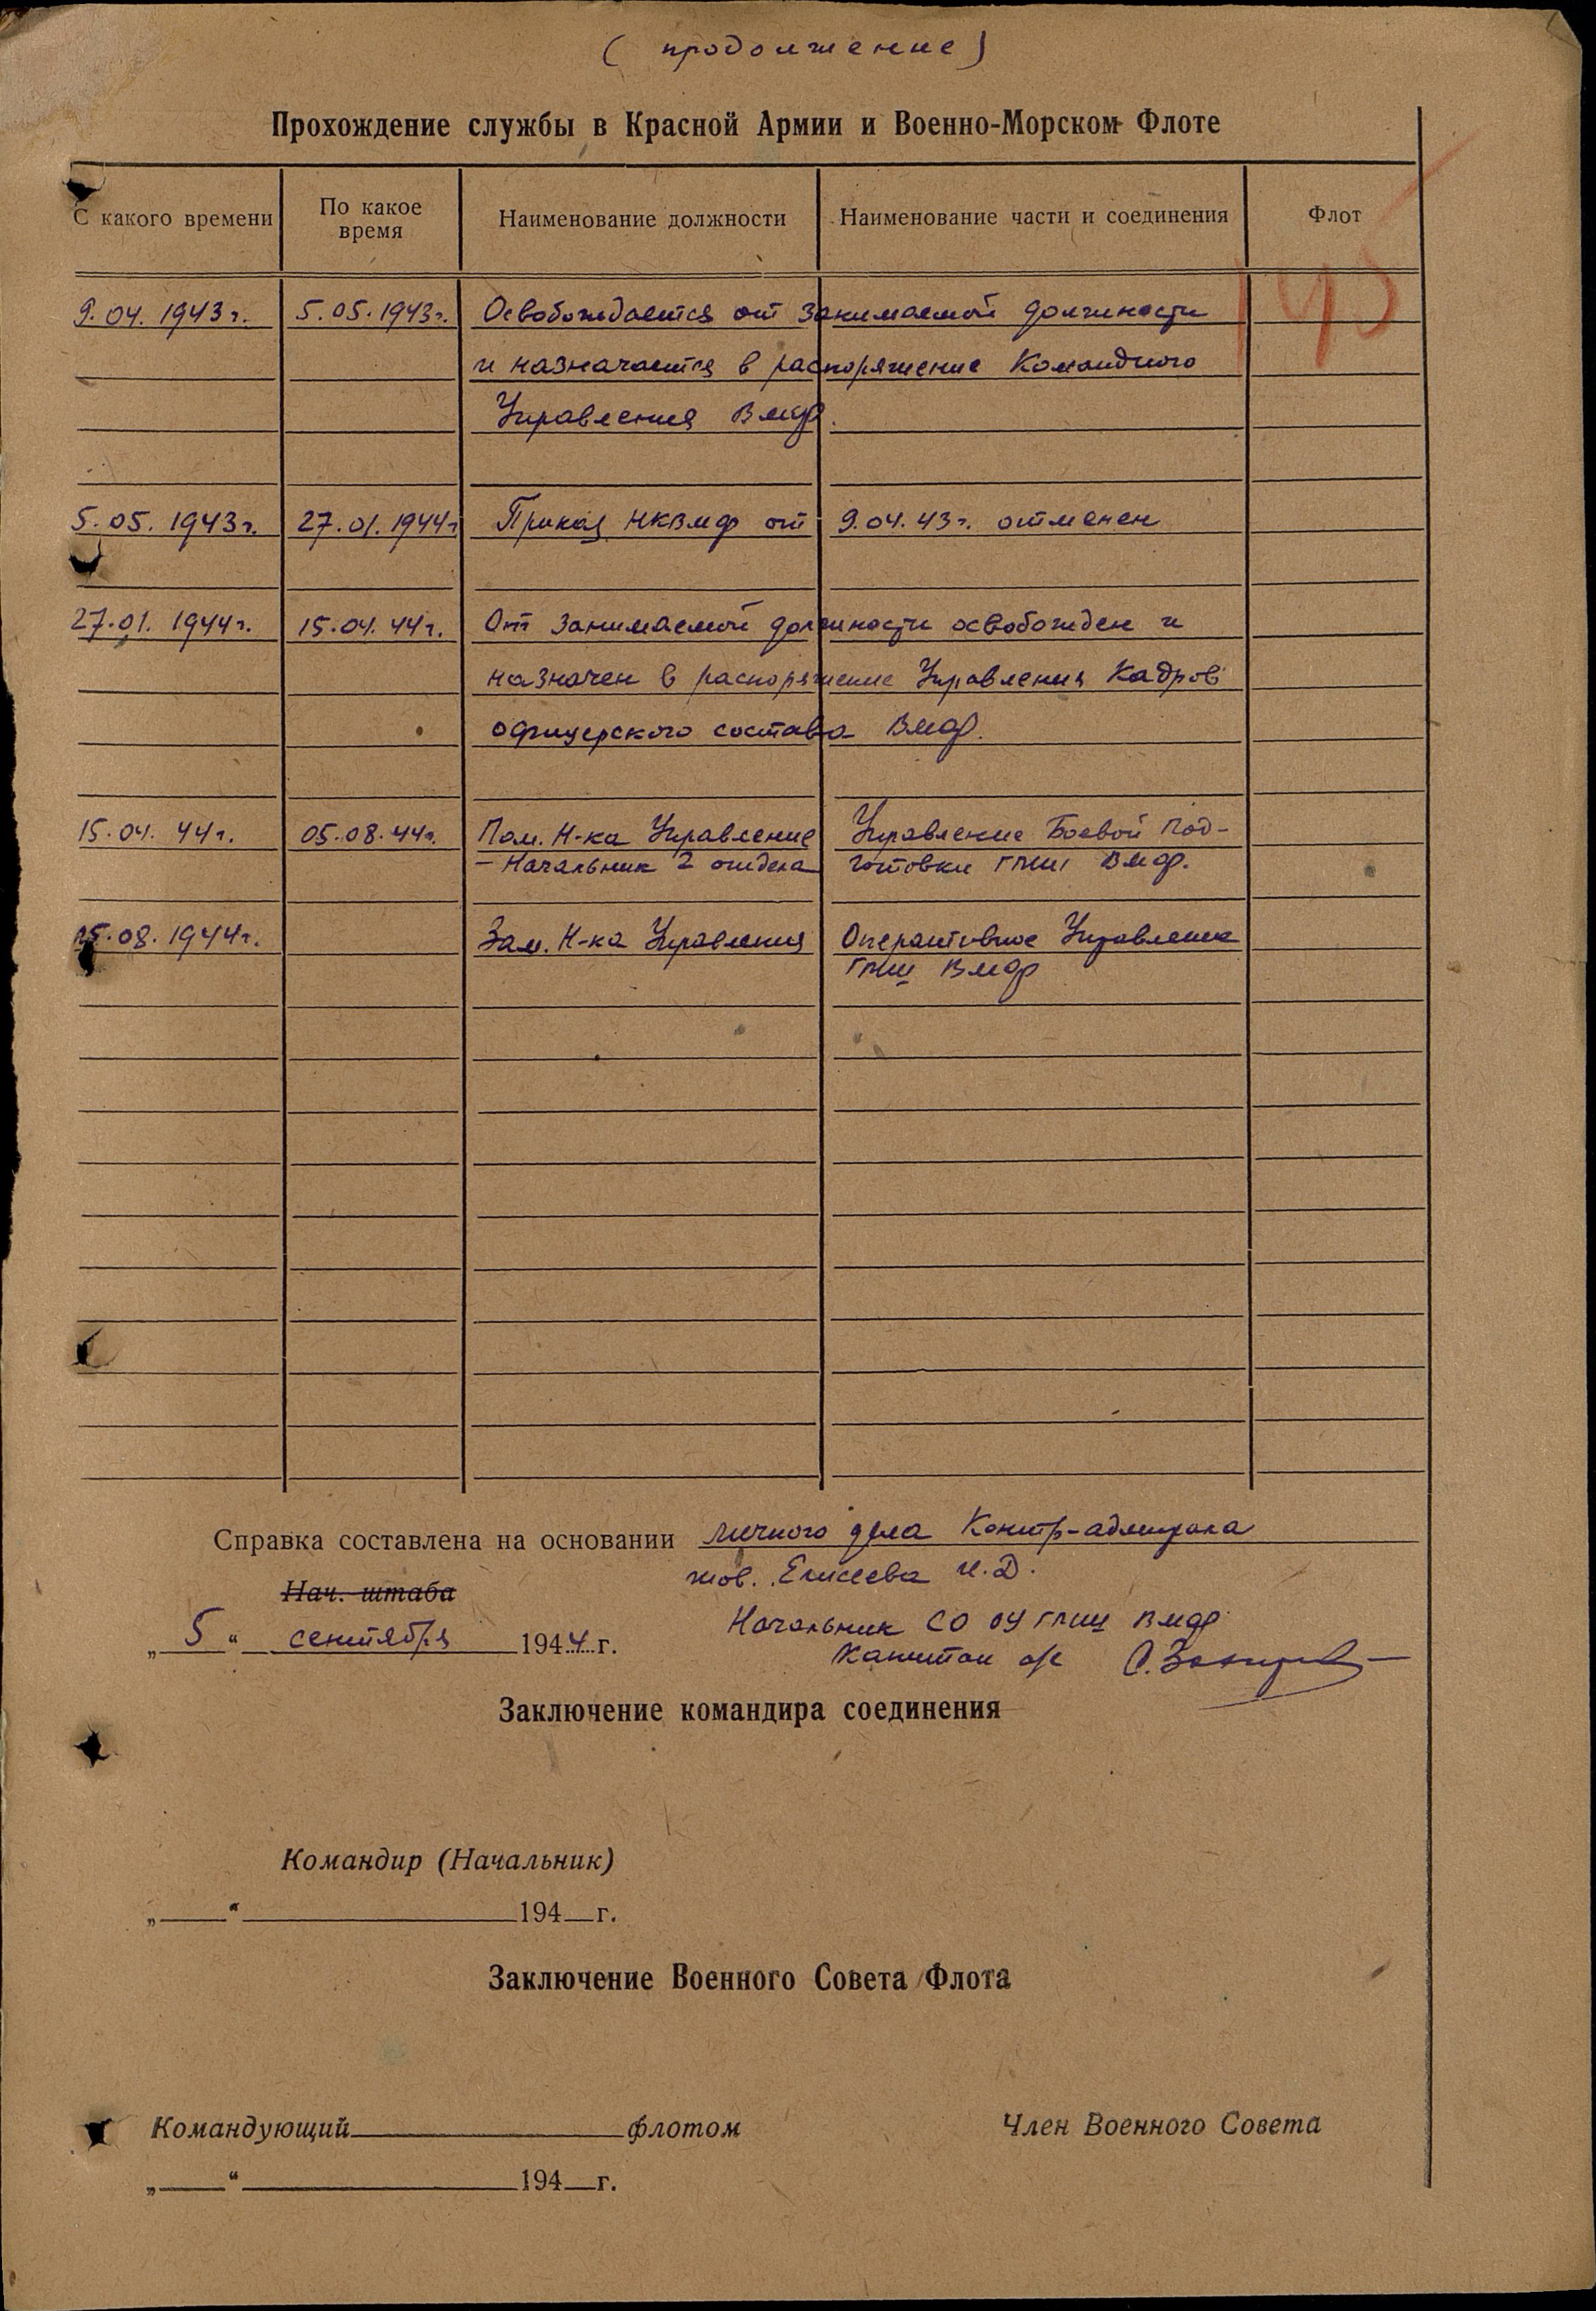 ( продолжение )
Прохождение службы в Красной Армии и Военно-Морском Флоте
С какого времени По какое время Наименование должности Наименование части и соединения Флот
145
9.04.1943г. 5.05.1943г. Освобождается от занимаемой должности
и назначается в распоряжение Командного
Управления ВМФ.
5.05.1943г. 27.01.1944г Приказ НКВМФ от 9.04.43г. отменен
27.01.1944г. 15.04.44г. От занимаемой должности освобожден и
назначен в распоряжение Управления Кадров
офицерского состава ВМФ.
15.04.44г. 05.08.44г. Пом. Н-ка Управление Управление Боевой Под-
- Начальник 2 отдела готовки ГМШ ВМФ.
05.08.1944г. Зам. Н-ка Управления Оперативное Управление
ГМШ ВМФ
Справка составлена на основании личного дела Контр-адмирала
тов. Елисеева И.Д.
Нач. штаба
„ 5 “ сентября 1944 г. Начальник СО ОУ ГМШ ВМФ
Капитан а/с
Заключение командира соединения
Командир (Начальник)
„ “ 194 г.
Заключение Военного Совета Флота
Командующий флотом Член Военного Совета
„ “ 194 г.